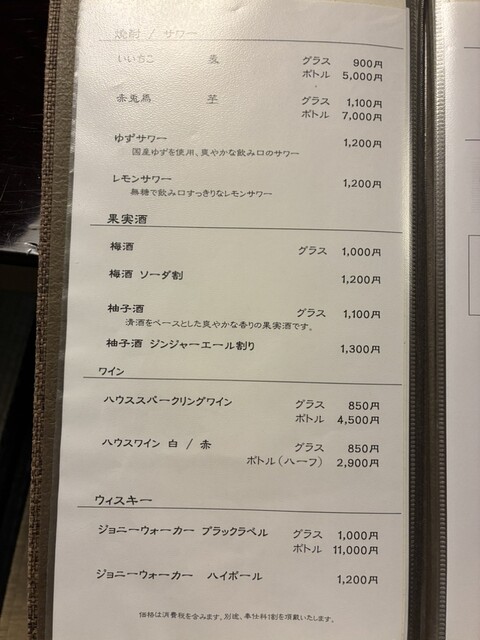 焼酎 / サワー
いいちこ 麦 グラス 900円
ボトル 5,000円
赤兎馬 芋 グラス 1,100円
ボトル 7,000円
ゆずサワー 1,200円
国産ゆずを使用、爽やかな飲み口のサワー
レモンサワー 1,200円
無糖で飲み口すっきりなレモンサワー
果実酒
梅酒 グラス 1,000円
梅酒 ソーダ割 1,200円
柚子酒 グラス 1,100円
清酒をベースとした爽やかな香りの果実酒です。
柚子酒 ジンジャーエール割り 1,300円
ワイン
ハウススパークリングワイン グラス 850円
ボトル 4,500円
ハウスワイン 白 / 赤 グラス 850円
ボトル(ハーフ) 2,900円
ウィスキー
ジョニーウォーカー ブラックラベル グラス 1,000円
ボトル 11,000円
ジョニーウォーカー ハイボール 1,200円
価格は消費税を含みます。別途、奉仕料1割を頂戴いたします。